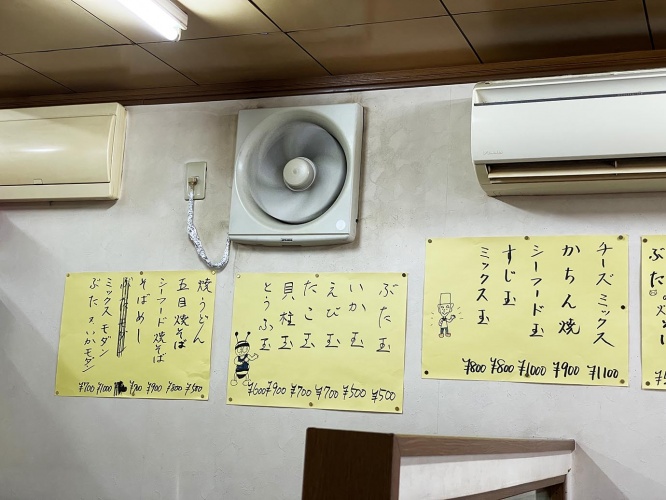 ぶた
チーズミックス ¥1100
かちん焼 ¥900
シーフード玉 ¥1000
すじ玉 ¥800
ミックス玉 ¥800
ぶた玉 ¥500
いか玉 ¥500
えび玉 ¥700
たこ玉 ¥700
貝柱玉 ¥900
とうふ玉 ¥600
焼うどん ¥500
五目焼そば ¥800
シーフード焼そば ¥900
そばめし
ミックスモダン ¥1000
ぶた又いかモダン ¥700